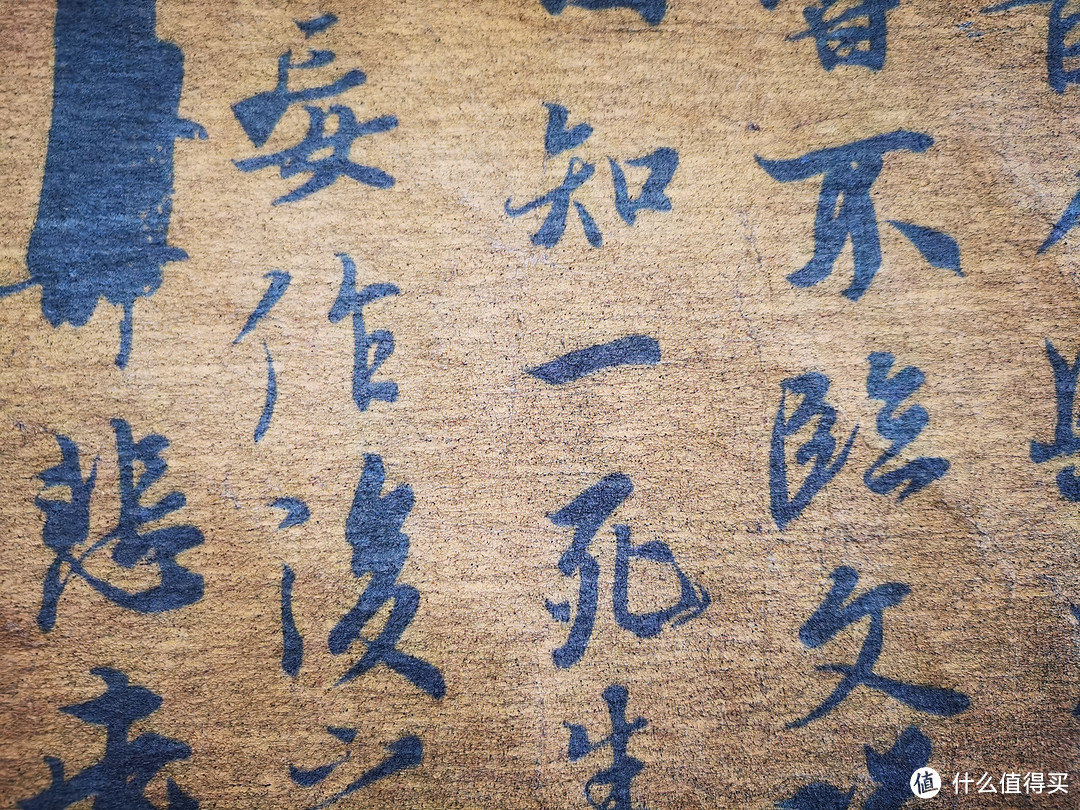 不臨文
知一死生
妄作後之
悲夫
值 什么值得买